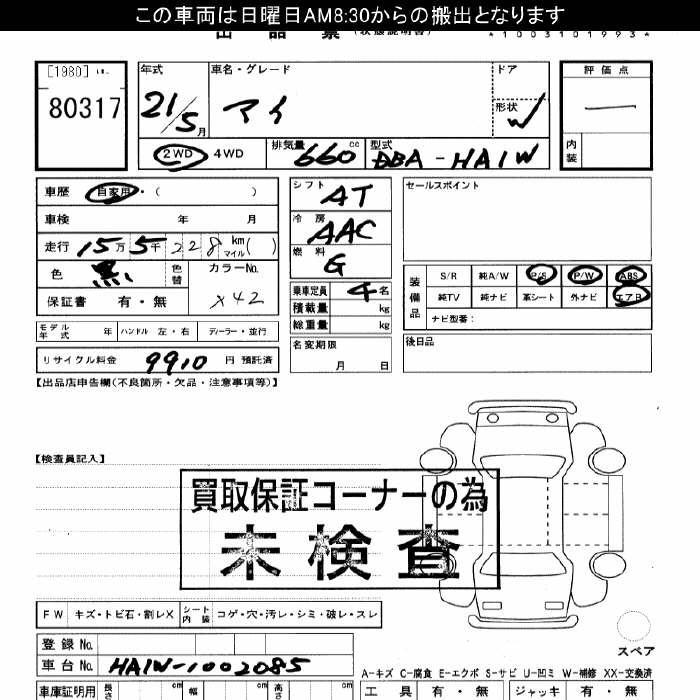 この車両は日曜日AM8:30からの搬出となります
出品票 (状態説明書) *1003101993*
[1980]
80317
年式 21/5月
車名・グレード マイ
ドア
形状 W
評価点 —
内装
2WD 4WD
排気量 660cc
型式 DBA-HA1W
車歴 自家用・( )
車検 年 月
走行 15万5千228km マイル( )
色 黒 色替
カラーNo. X42
保証書 有・無
シフト AT
冷房 AAC
燃料 G
乗車定員 4名
積載量 kg
総重量 kg
セールスポイント
装備品
S/R 純A/W P/S P/W ABS
純TV 純ナビ 革シート 外ナビ エアB
ナビ型番:
モデル年式 年 ハンドル 左・右 ディーラー・並行
名変期限 月 日
後日品
リサイクル料金 9910 円 預託済
【出品店申告欄(不良箇所・欠品・注意事項等)】
【検査員記入】
買取保証コーナーの為
未検査
FW キズ・トビ石・割レX シート内装 コゲ・穴・汚レ・シミ・破レ・スレ
スペア
登録 No.
車台 No. HA1W-1002085
A-キズ C-腐食 E-エクボ S-サビ U-凹ミ W-補修 XX-交換済
車庫証明用 長さ cm 幅 cm 高さ cm
工具 有・無 ジャッキ 有・無